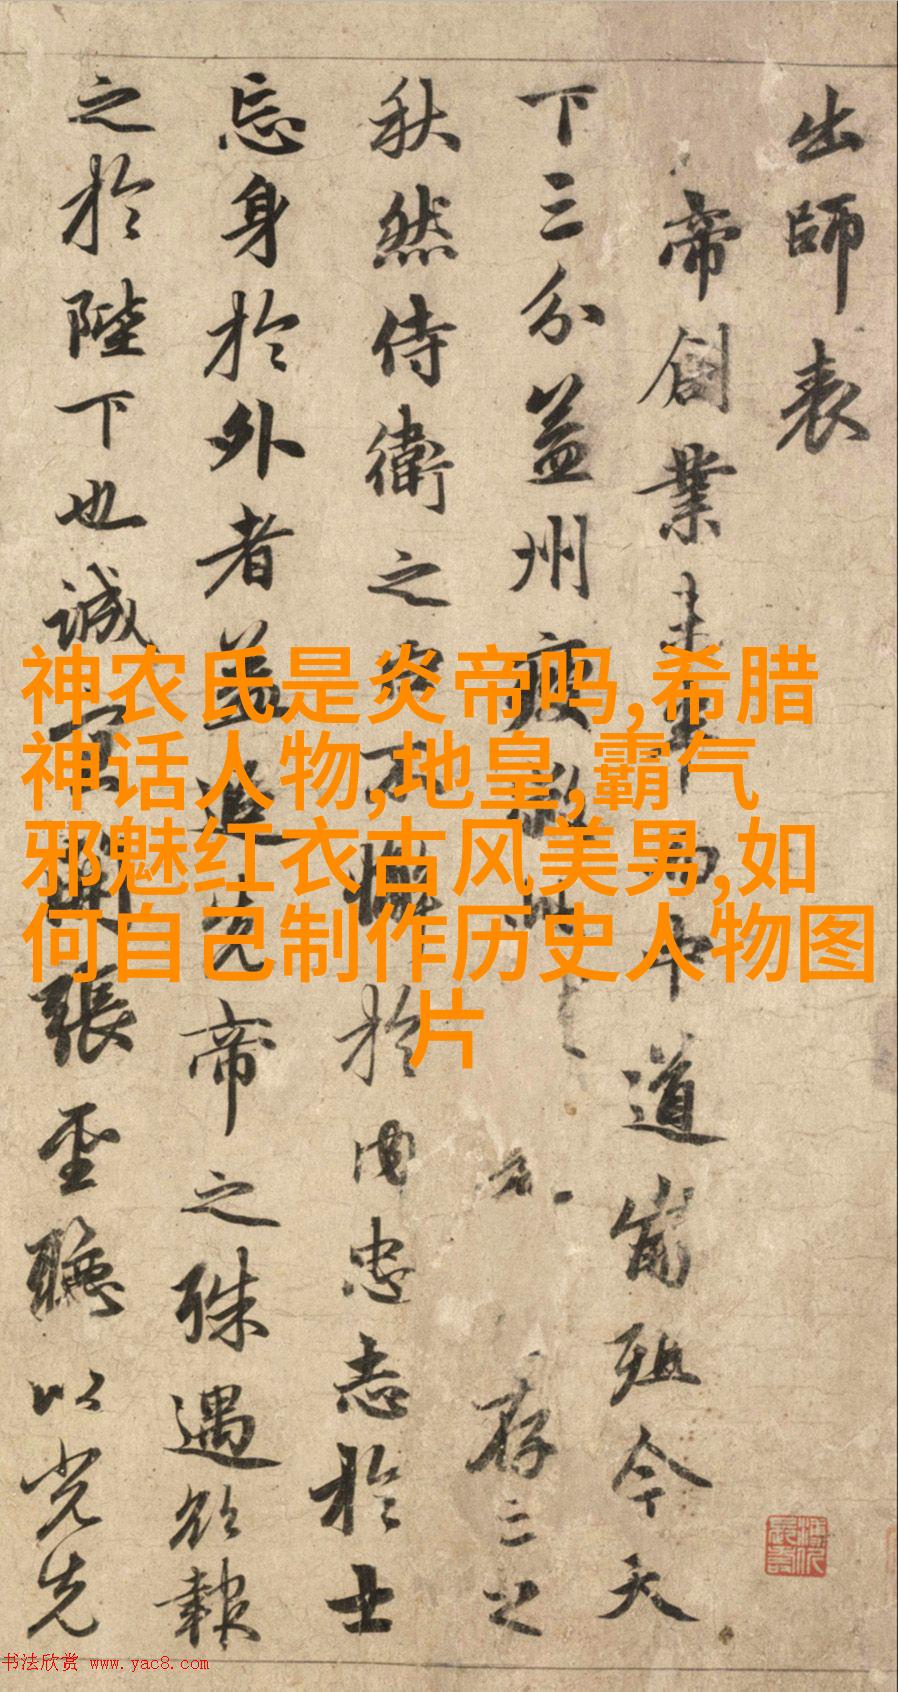 出師表
帝創業未半而中道崩殂今天
下三分益州疲敝此存亡之
秋然侍衛之臣不懈於内忠志於士
忘身於外者蓋追先帝之殊遇欲報
之於陛下也誠宜開張聖聽以光先
神农氏是炎帝吗,希腊
神话人物,地皇,霸气
邪魅红衣古风美男,如
何自己制作历史人物图
片
书法欣赏 www.yac8.com